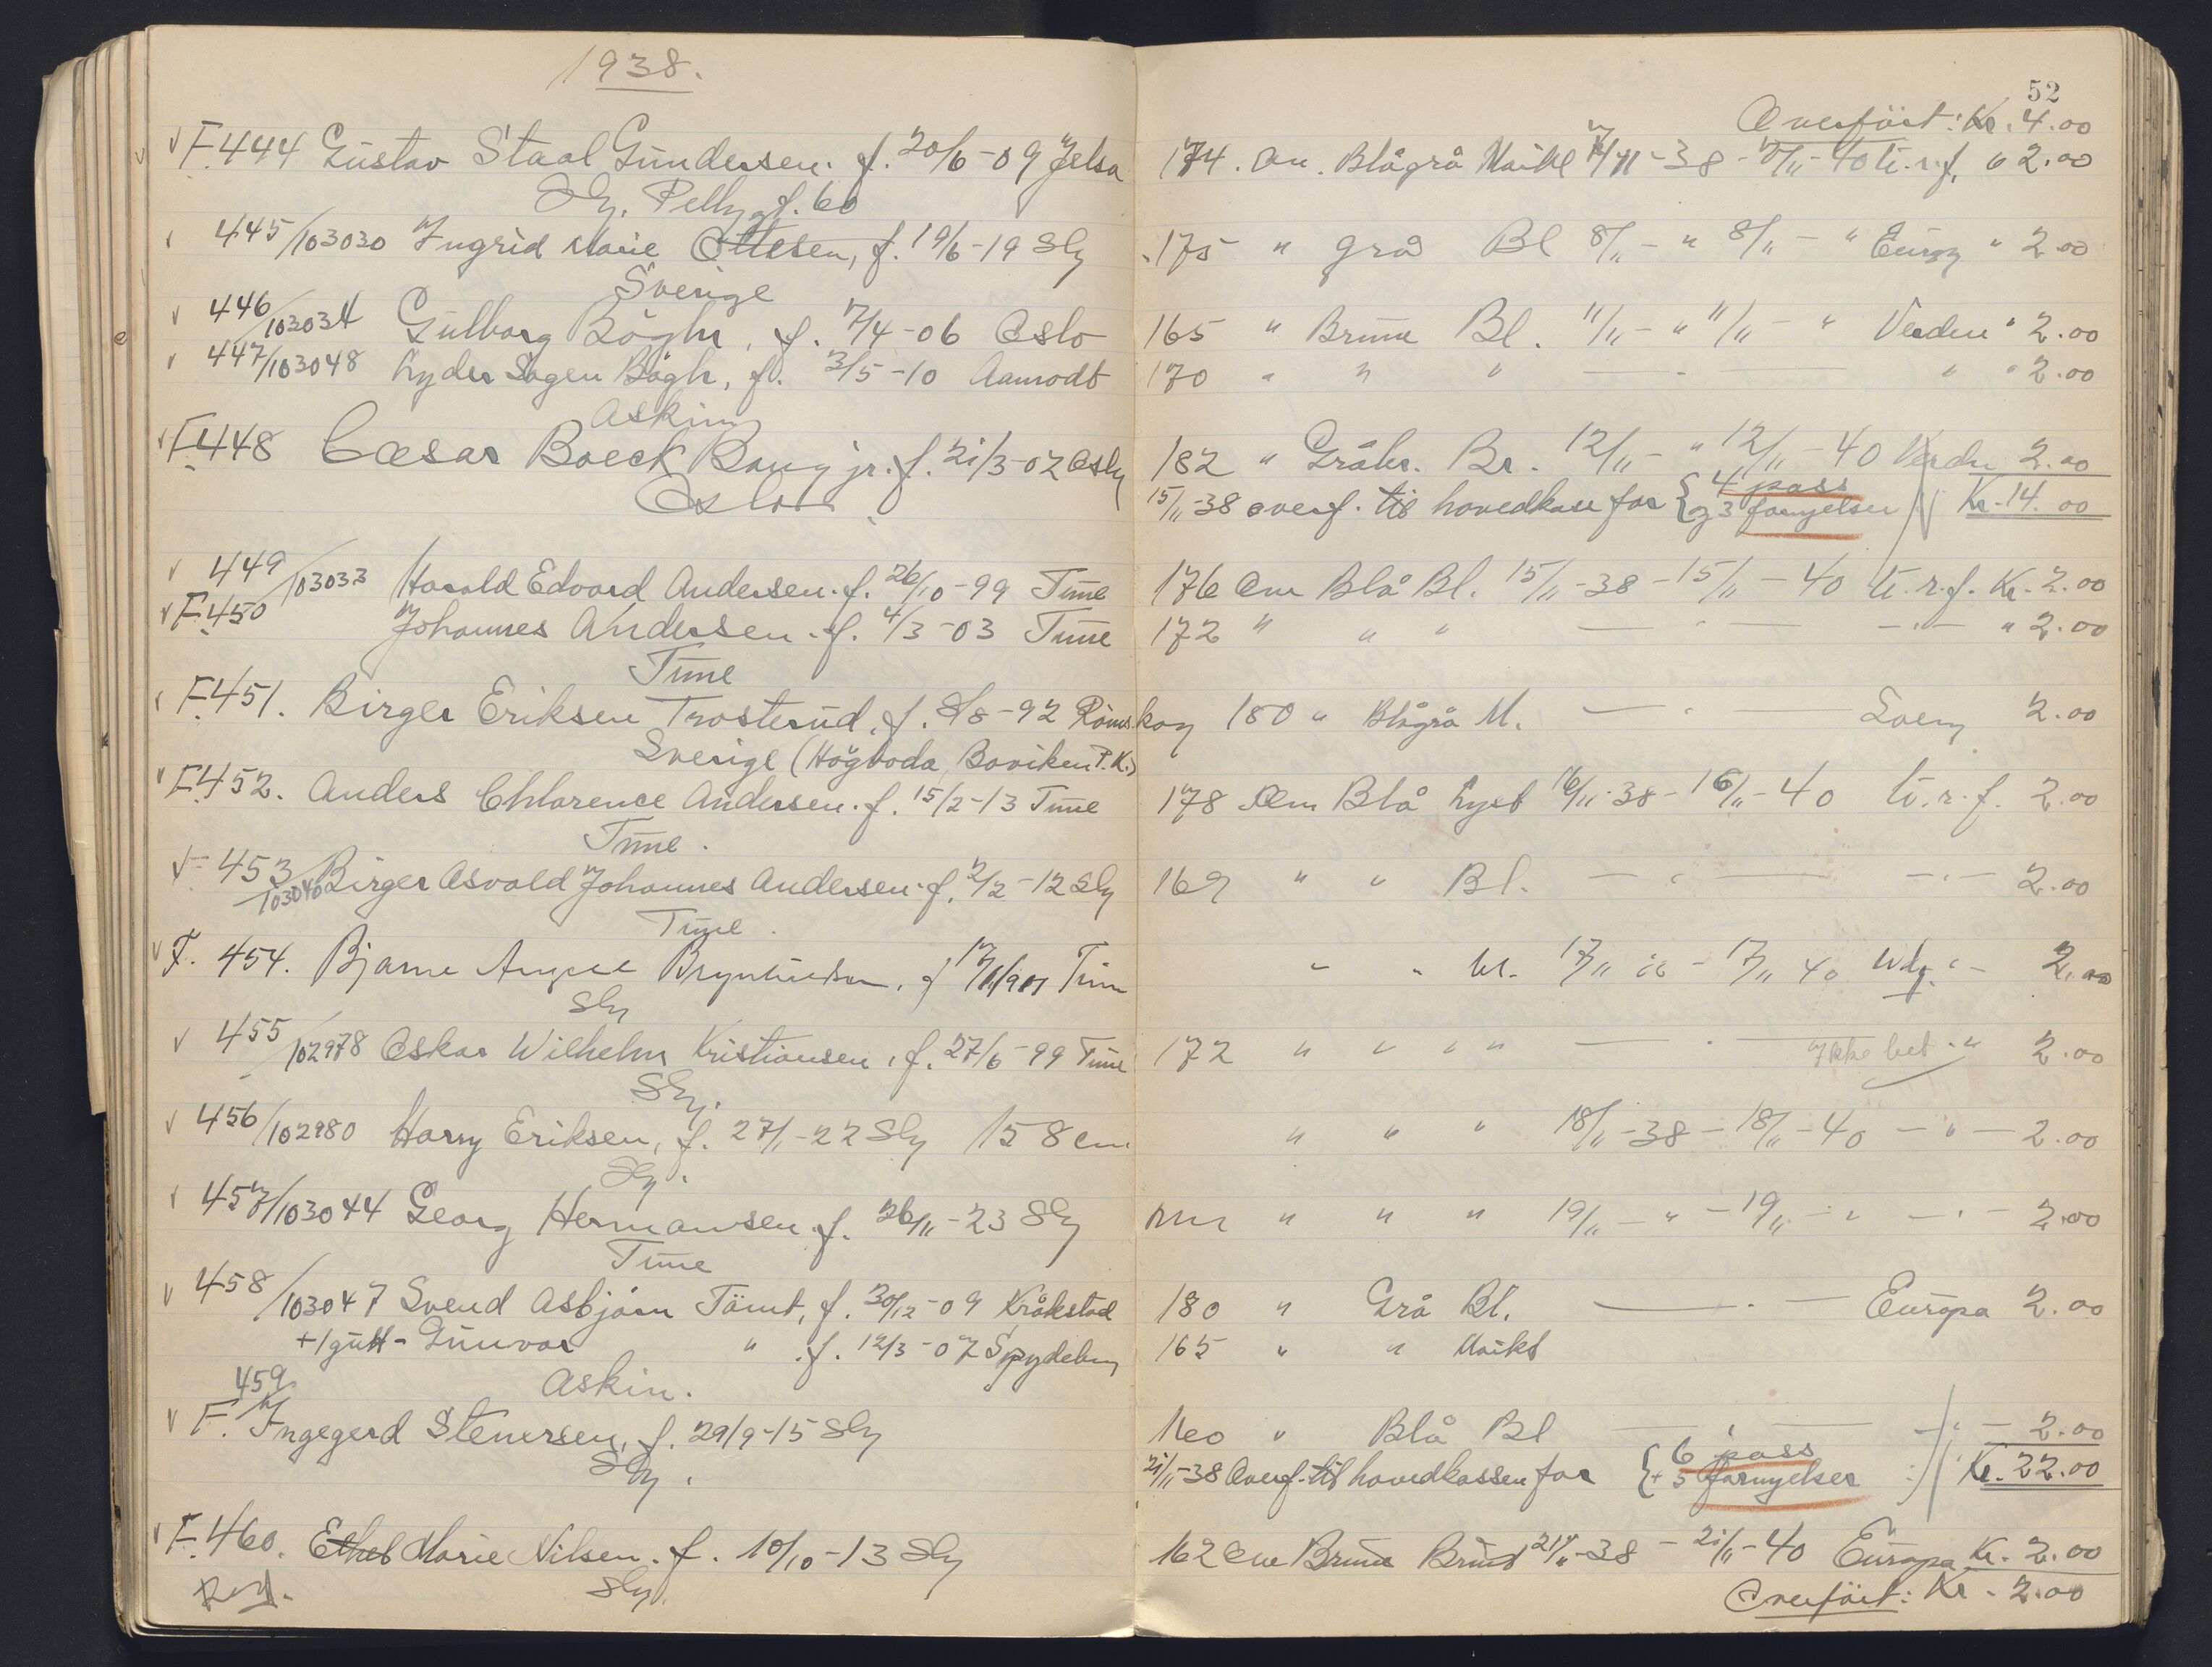 1938.
52
Overført: Kr. 4.00
F. 444 Gustav Staal Gundersen. f. 20/6-09 Jelsa 174. cm. Blågrå Mörkl 7/11-38 - 7/11-40 ti. r. f. " 2.00
Sbg. Pellygt. 60
445/103030 Ingrid Marie Ottesen, f. 19/6-19 Sbg 175 " grå Bl 8/11 - " 8/11 - " Europ " 2.00
Sverige
446/103034 Gulborg Bögh, f. 7/4-06 Oslo 165 " Brune Bl. 11/11 - " 11/11 - " Verden " 2.00
447/103048 Lyder Sagen Bögh, f. 3/5-10 Aamodt 170 " " " — " — " " 2.00
Askim
F. 448 Cæsar Boeck Bang jr. f. 21/3-02 Oslo 182 " Gråbr. Br. 12/11 - " 12/11 - 40 Verden 2.00
Oslo 15/11-38 overf. til hovedkasse for { 4 pass
og 3 fornyelser Kr. 14.00
449/103033 Harald Edvard Andersen. f. 26/10-99 Tune 176 cm Blå Bl. 15/11-38 - 15/11 - 40 ti. r. f. Kr. 2.00
F. 450 Johannes Andersen. f. 4/3-03 Tune 172 " " " — " — - " - " 2.00
Tune
F. 451. Birger Eriksen Trosterud, f. 8/8-92 Römskog 180 " Blågrå M. — " — Sverig 2.00
Sverige (Högboda, Boviken P.K.)
F. 452. Anders Chlarence Andersen. f. 15/2-13 Tune 178 cm Blå Lyst 16/11-38 - 16/11 - 40 ti. r. f. 2.00
Tune.
453/103040 Birger Asvald Johannes Andersen. f. 2/2-12 Sbg 169 " " Bl. — " — - " - 2.00
Tune.
F. 454. Bjarne f. Tune " " bl. 17/11 - 17/11 40 - 2.00
Sbg
455/102978 Oskar Wilhelm Kristiansen, f. 27/6-99 Tune 172 " " " " — " — Ikke bet. " 2.00
Sbg.
456/102980 Harry Eriksen, f. 27/1-22 Sbg 158 cm " " " 18/11-38 - 18/11 - 40 - " - 2.00
Sbg.
457/103044 Georg Hermansen. f. 26/11-23 Sbg " " " 19/11 - " - 19/11 - " - " - 2.00
Tune
458/103047 Svend Asbjörn Tömt, f. 30/12-09 Kråkstad 180 " Grå Bl. — " — Europa 2.00
+ 1 gutt - Gunvor " f. 12/3-07 Spydeberg 165 " " Mörkt
Askim.
F. 459 Ingegerd Stenersen, f. 29/9-15 Sbg 160 " Blå Bl — " — - " - 2.00
Sbg. 21/11-38 Overf. til hovedkassen for { 6 pass
+ 5 fornyelser Kr. 22.00
F. 460. Ethel Marie Nilsen. f. 10/10-13 Sbg 162 cm Brune Brunt 21/11-38 - 21/11-40 Europa Kr. 2.00
Sbg. Overført: Kr. 2.00